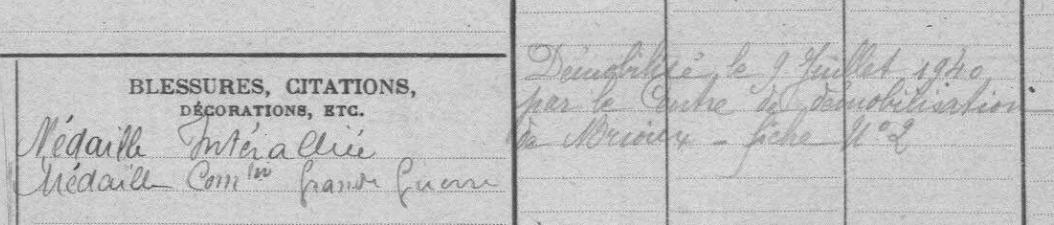 BLESSURES, CITATIONS,
DÉCORATIONS, ETC.
Médaille Interalliée
Médaille Com^ve Grande Guerre
Démobilisé le 9 Juillet 1940
par le Centre de démobilisation
de fiche N° 2